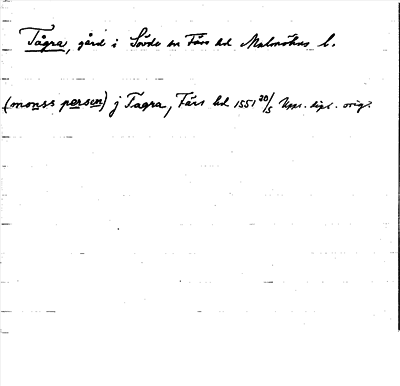 Tågra, gård i Sövde sn Färs hd Malmöhus l.
(monss persen) j Tagra, Färs hd 1551 20/5 Uppr. dipl. orig.